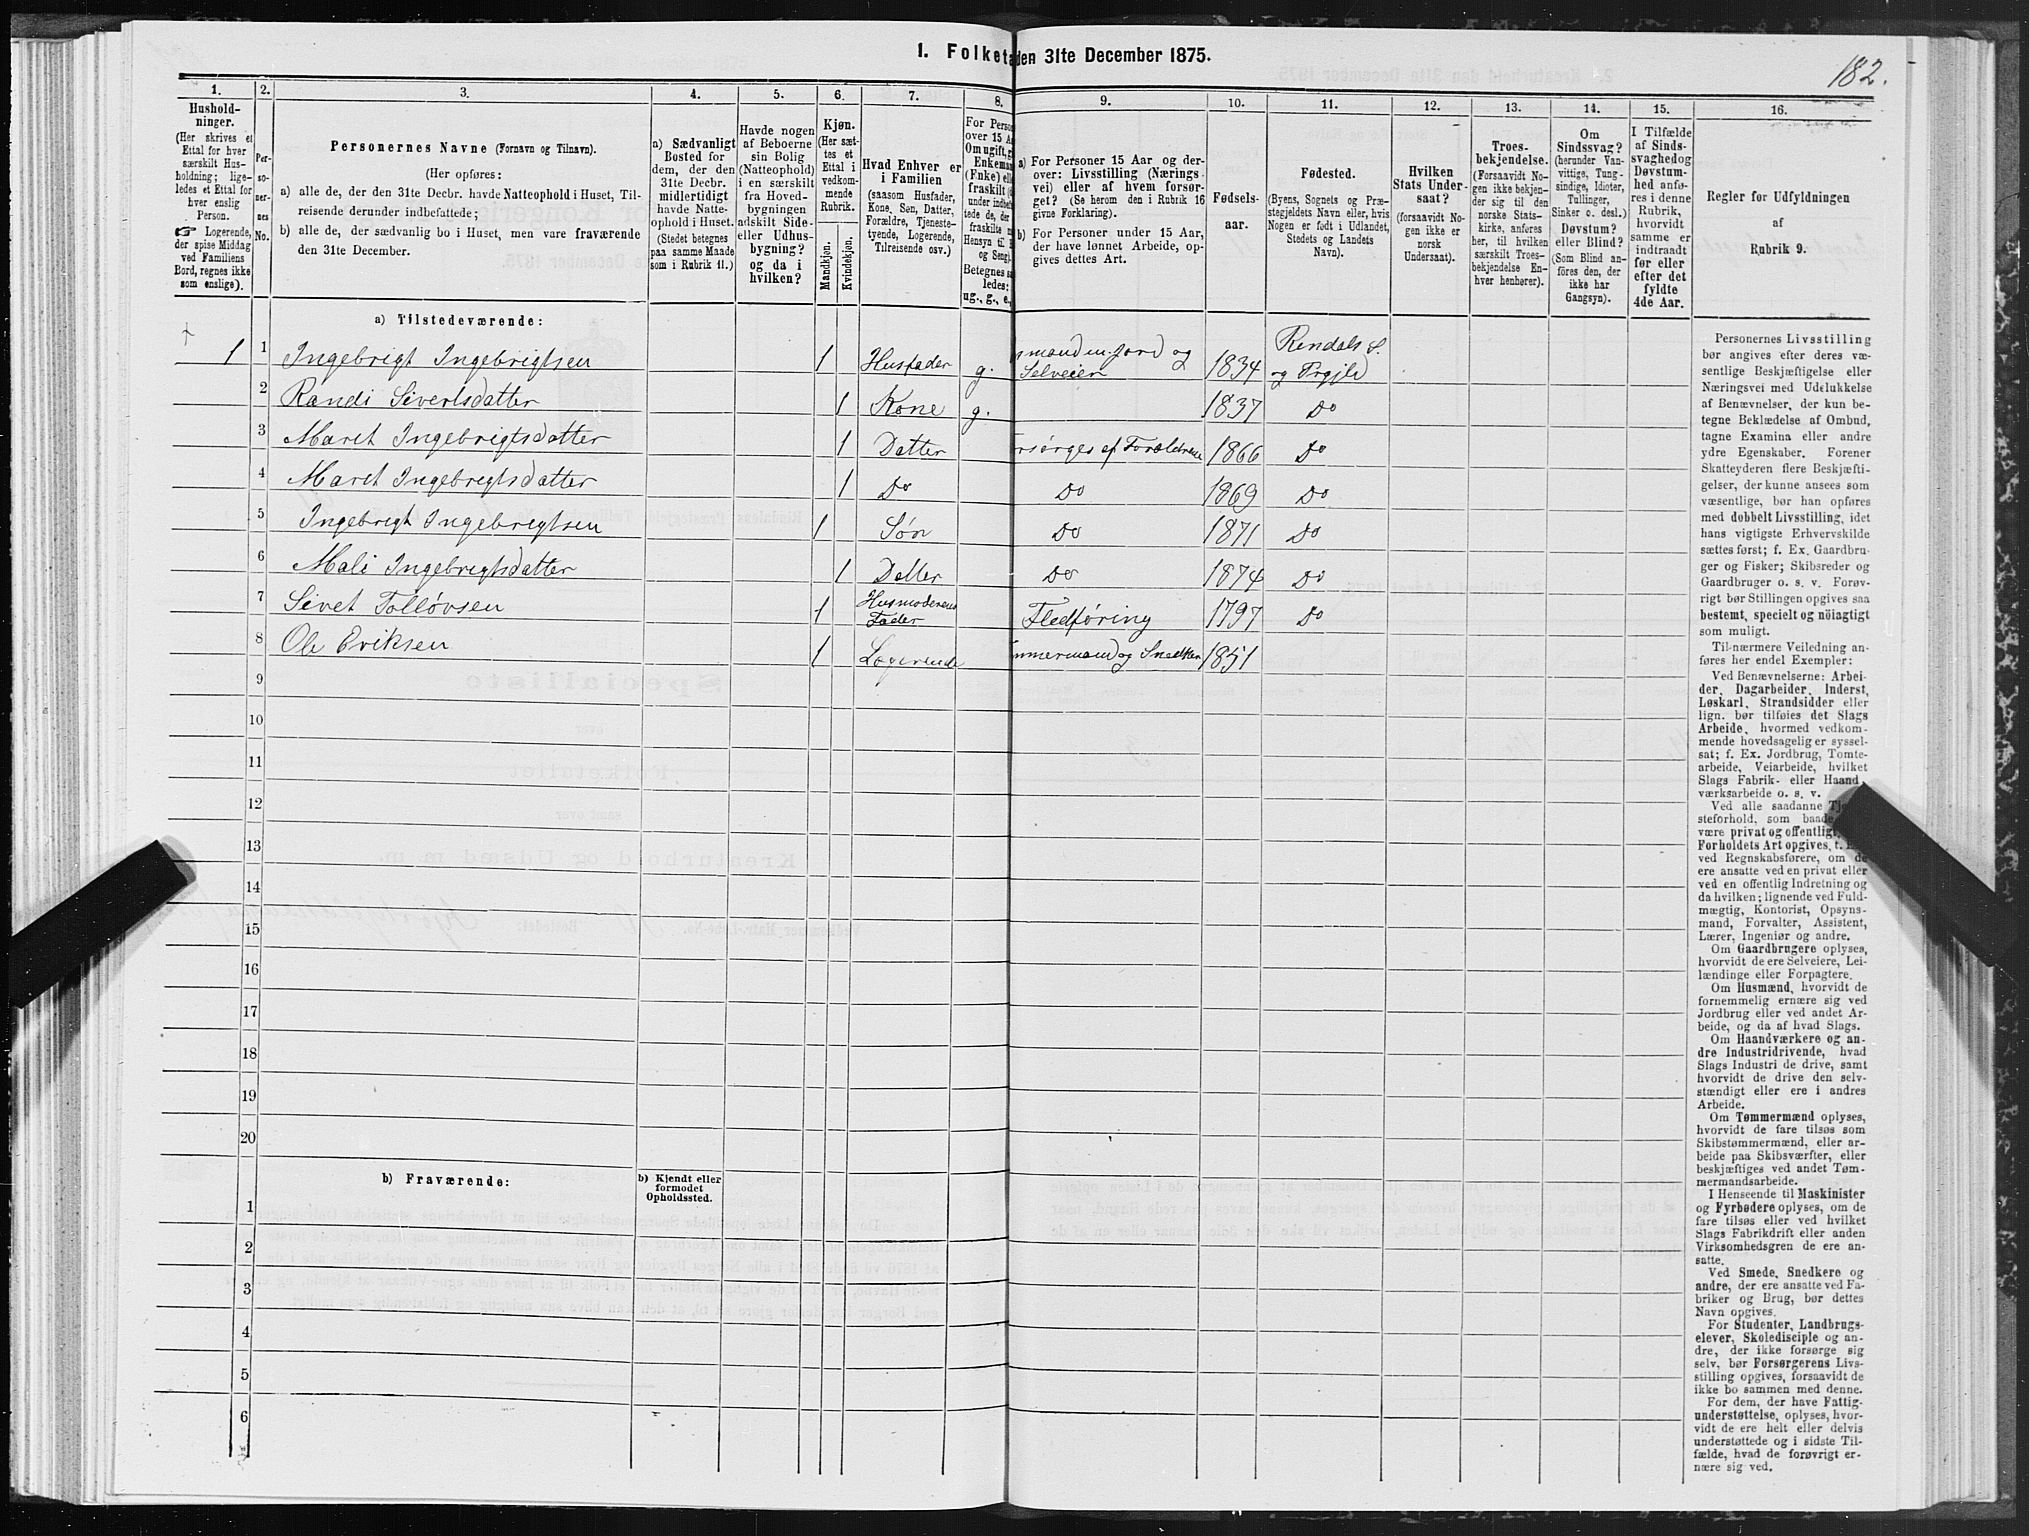 1. Folketæ
den 31te December 1875.
182.
1.
2.
3.
4.
5.
6.
7.
8.
9.
10.
11.
12.
13.
14.
15.
16.
Hushold-
ninger.
(Her skrives et
Ettal for hver
særskilt Hus-
holdning; lige-
ledes et Ettal for
hver enslig
Person.
☞ Logerende,
der spise Middag
ved Familiens
Bord, regnes ikke
som enslige).
Per-
so-
ner-
nes
No.
Personernes Navne (Fornavn og Tilnavn).
(Her opføres:
a) alle de, der den 31te Decbr. havde Natteophold i Huset, Til-
reisende derunder indbefattede;
b) alle de, der sædvanlig bo i Huset, men vare fraværende
den 31te December.
a) Sædvanligt
Bosted for
dem, der den
31te Decbr.
midlertidigt
havde Natte-
ophold i Huset.
(Stedet betegnes
paa samme Maade
som i Rubrik 11.)
Havde nogen
af Beboerne
sin Bolig
(Natteophold)
i en særskilt
fra Hoved-
bygningen
adskilt Side-
eller Udhus-
bygning?
og da i
hvilken?
Kjøn.
(Her sæt-
tes et
Ettal i
vedkom-
mende
Rubrik.
Mandkjøn.
Kvindekjøn.
Hvad Enhver er
i Familien
(saasom Husfader,
Kone, Søn, Datter,
Forældre, Tjeneste-
tyende, Logerende,
Tilreisende osv.)
For Person
over 15 Aa
Om ugift, gi
Enkeman
(Enke) elle
fraskilt (
under indbef
tede de, der
fraskilte
Hensyn til B
og Seng).
Betegnes sa
ledes:
ug., g., e.,
a) For Personer 15 Aar og der-
over: Livsstilling (Nærings-
vei) eller af hvem forsør-
get? (Se herom den i Rubrik 16
givne Forklaring).
b) For Personer under 15 Aar,
der have lønnet Arbeide, op-
gives dettes Art.
Fødsels-
aar.
Fødested.
(Byens, Sognets og Præ-
stegjeldets Navn eller, hvis
Nogen er født i Udlandet,
Stedets og Landets
Navn).
Hvilken
Stats Under-
saat?
(forsaavidt No-
gen ikke er
norsk
Undersaat).
Troes-
bekjendelse.
(Forsaavidt No-
gen ikke bekjen-
der sig til den
norske Stats-
kirke, anføres
her, til hvilken
særskilt Troes-
bekjendelse En-
hver henhører).
Om
Sindssvag?
(herunder Van-
vittige, Tung-
sindige, Idioter,
Tullinger,
Sinker o. desl.)
Døvstum?
eller Blind?
(Som Blind an-
føres den, der
ikke har
Gangsyn).
I Tilfælde
af Sinds-
svaghed og
Døvstum-
hed anfø-
res i denne
Rubrik,
hvorvidt
samme er
indtraadt
før eller
efter det
fyldte
4de Aar.
Regler for Udfyldningen
af
Rubrik 9.
a) Tilstedeværende:
1 1 Ingebrigt Ingebrigtsen 1 Husfader g. smand m. jord og Selveier 1834 Rendals S. og Prgjld
2 Randi Sivertsdatter 1 Kone g. 1837 Do
3 Maret Ingebrigtsdatter 1 Datter rsørges af Forældrene 1866 Do
4 Maret Ingebrigtsdatter 1 Do Do 1869 Do
5 Ingebrigt Ingebrigtsen 1 Søn Do 1871 Do
6 Mali Ingebrigtsdatter 1 Datter Do 1874 Do
7 Sivet Tolløvsen 1 Husmoderens Fader Fledføring 1797 Do
8 Ole Eriksen 1 Logerende mmermand og Snedker 1851
9
10
11
12
13
14
15
16
17
18
19
20
b) Fraværende:
b) Kjendt eller
formodet
Opholdssted.
1
2
3
4
5
6
Personernes Livsstilling
bør angives efter deres væ-
sentlige Beskjæftigelse eller
Næringsvei med Udelukkelse
af Benævnelser, der kun be-
tegne Beklædelse af Ombud,
tagne Examina eller andre
ydre Egenskaber. Forener
Skatteyderen flere Beskjæfti-
gelser, der kunne ansees som
væsentlige, bør han opføres
med dobbelt Livsstilling, idet
hans vigtigste Erhvervskilde
sættes først; f. Ex. Gaardbru-
ger og Fisker; Skibsreder og
Gaardbruger o. s. v. Forøv-
rigt bør Stillingen opgives saa
bestemt, specielt og nöiagtigt
som muligt.
Til nærmere Veiledning an-
føres her endel Exempler:
Ved Benævnelserne: Arbei-
der, Dagarbeider, Inderst,
Løskarl, Strandsidder eller
lign. bør tilføies det Slags
Arbeide, hvormed vedkom-
mende hovedsagelig er syssel-
sat; f. Ex. Jordbrug, Tomte-
arbeide, Veiarbeide, hvilket
Slags Fabrik- eller Haand
værksarbeide o. s. v.
Ved alle saadanne Tje
steforhold, som baade
være privat og offentligt,
Forholdets Art opgives, t. E
ved Regnskabsførere, om de
ere ansatte ved en privat eller
ved en offentlig Indretning og
da hvilken; lignende ved Fuld-
mægtig, Kontorist, Opsyns-
mand, Forvalter, Assistent,
Lærer, Ingeniør og andre.
Om Gaardbrugere oplyses,
hvorvidt de ere Selveiere, Lei-
lændinge eller Forpagtere.
Om Husmænd, hvorvidt de
fornemmelig ernære sig ved
Jordbrug eller ved andet Ar-
beide, og da af hvad Slags.
Om Haandværkere og an-
dre Industridrivende, hvad
Slags Industri de drive, samt
hvorvidt de drive den selv-
stændigt eller ere i andres
Arbeide.
Om Tømmermænd oplyses,
hvorvidt de fare tilsøs som
Skibstømmermænd, eller ar-
beide paa Skibsværfter, eller
beskjæftiges ved andet Tøm-
mermandsarbeide.
I Henseende til Maskinister
og Fyrbødere oplyses, om de
fare tilsøs eller ved hvilket
Slags Fabrikdrift eller anden
Virksomhedsgren de ere an-
satte.
Ved Smede, Snedkere og
andre, der ere ansatte ved Fa-
briker og Brug, bør dettes
Navn opgives.
For Studenter, Landbrugs-
elever, Skoledisciple og an-
dre, der ikke forsørge sig
selv, bør Forsørgerens Livs-
stilling opgives, forsaavidt de
ikke bo sammen med denne.
For dem, der have Fattig-
understøttelse, oplyses, hvor-
vidt de ere helt eller delvis
understøttede og i sidste Til-
fælde, hvad de forøvrigt er-
nære sig ved.